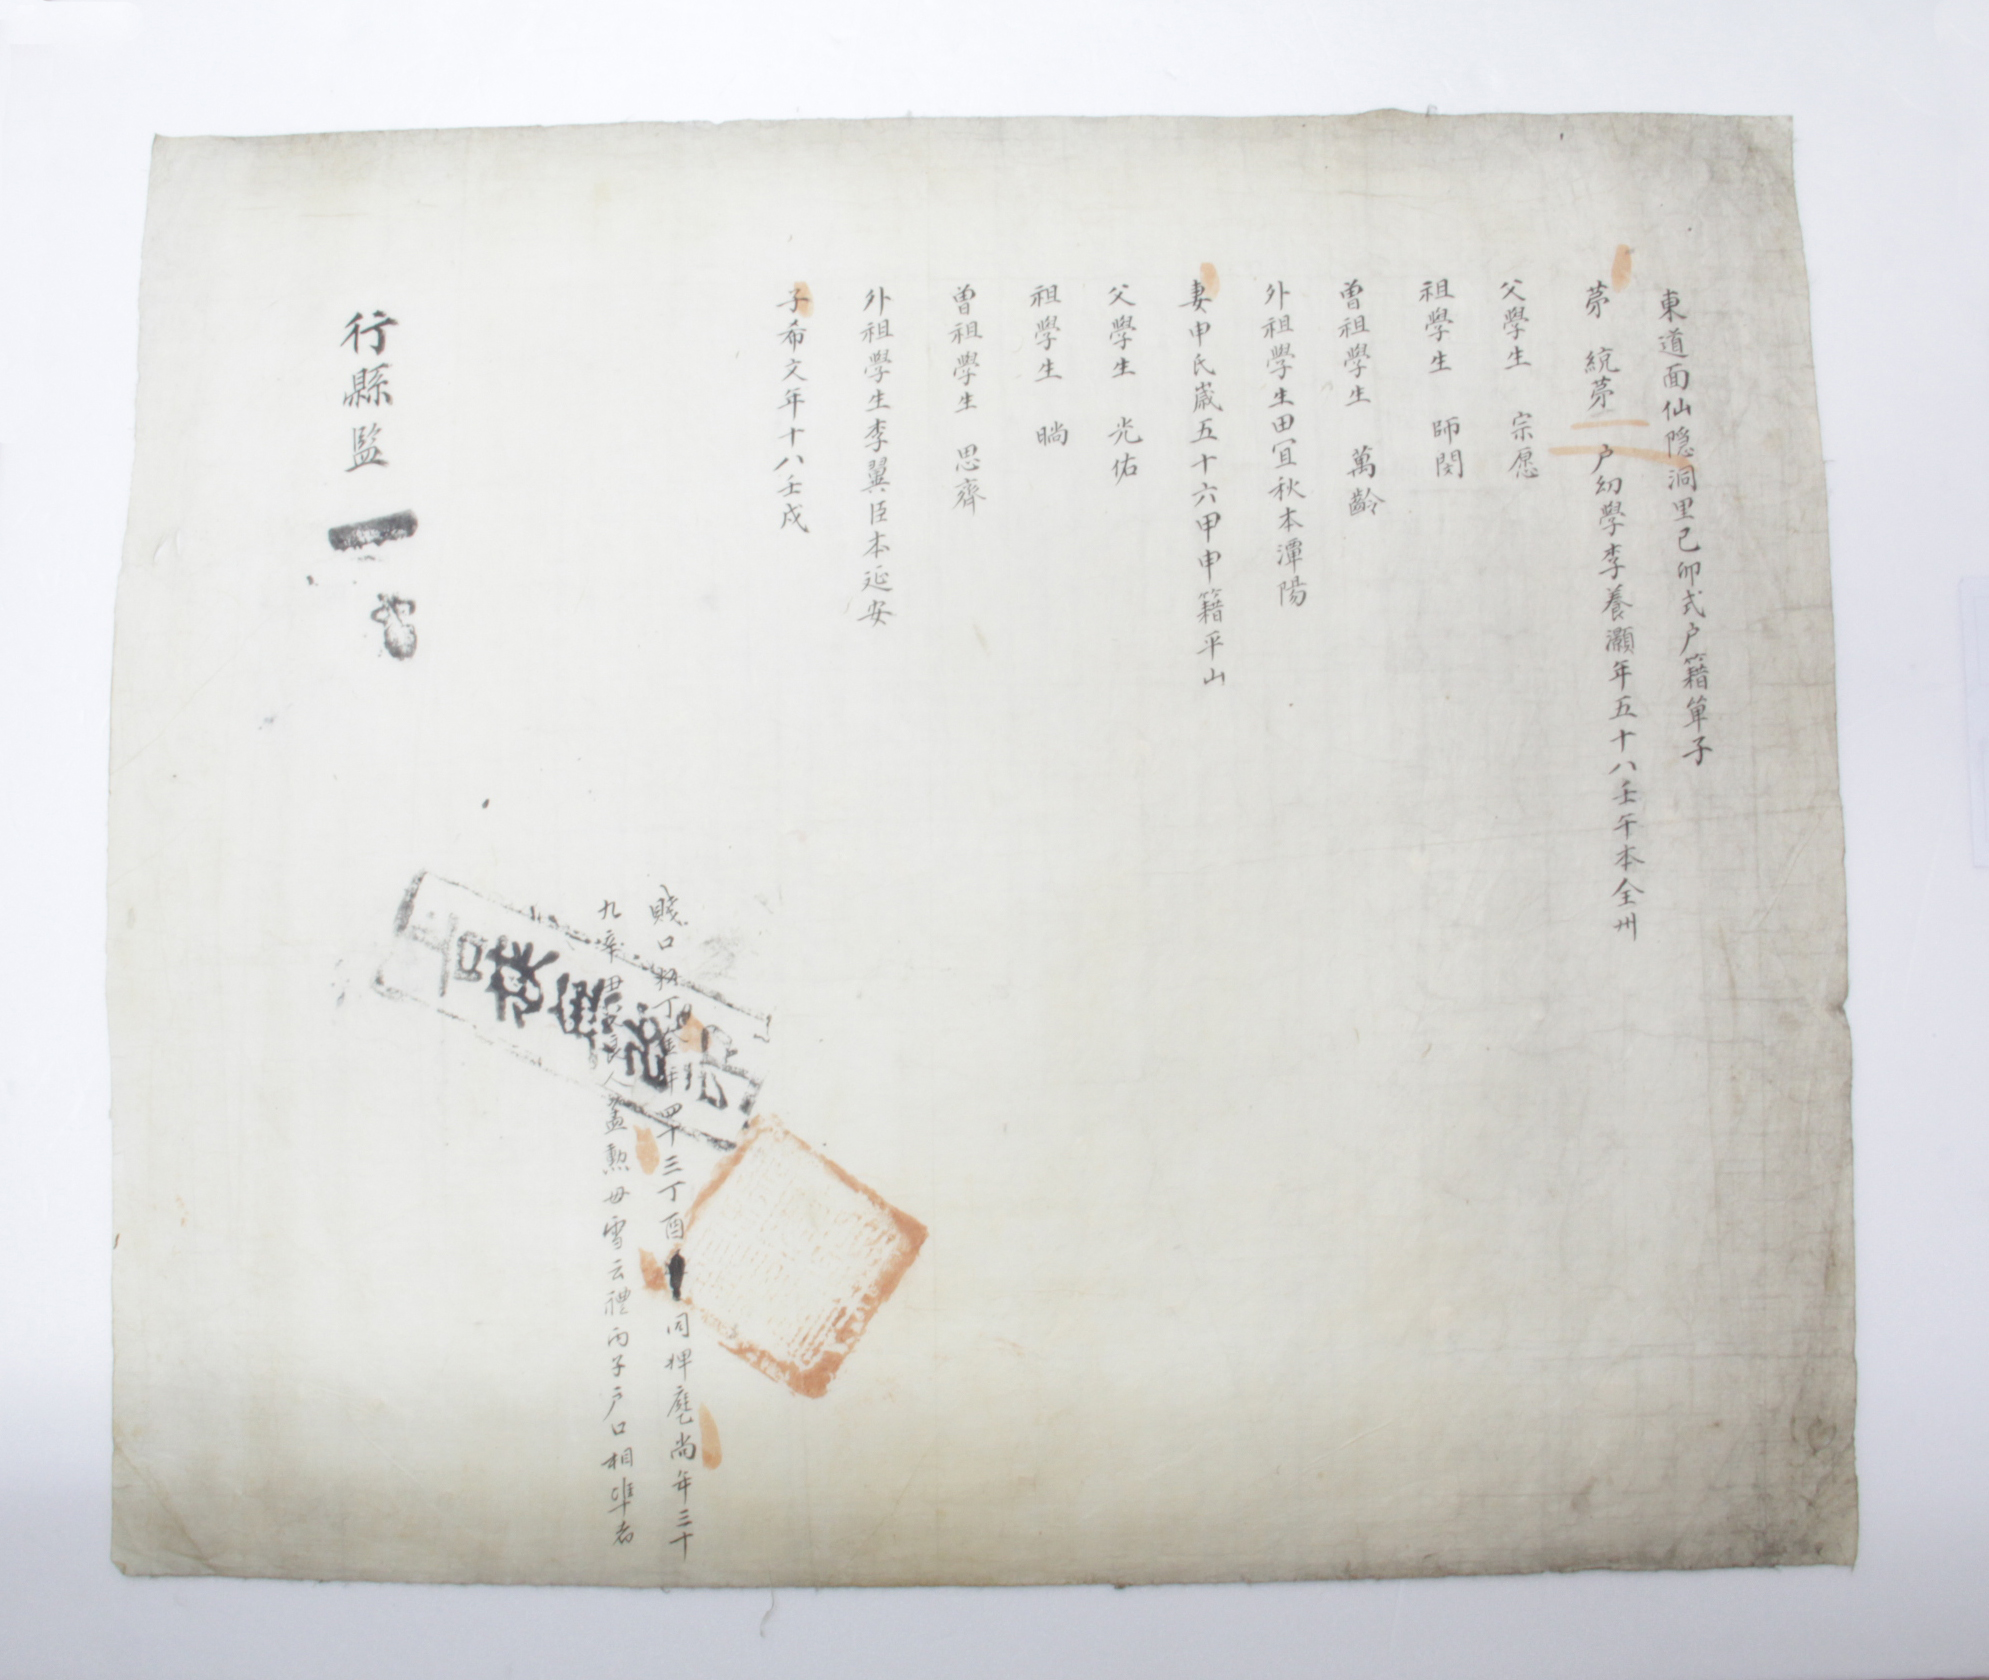 東道面仙隐洞里己卯式户籍單子
苐 統苐 户幼學李養灝年五十八壬午本全州
父學生 宗愿
祖學生 師閔
曾祖學生 萬齡
外祖學生田冝秋本潭陽
妻申氏歲五十六甲申籍平山
父學生 光佑
祖學生 晪
曾祖學生 思齊
外祖學生李翼臣本延安
子希文年十八壬戌
賤口 丁 年四十三丁酉 同婢 尚年三十
九 良人孟勲母雪云禮丙子户口相凖者
行縣監